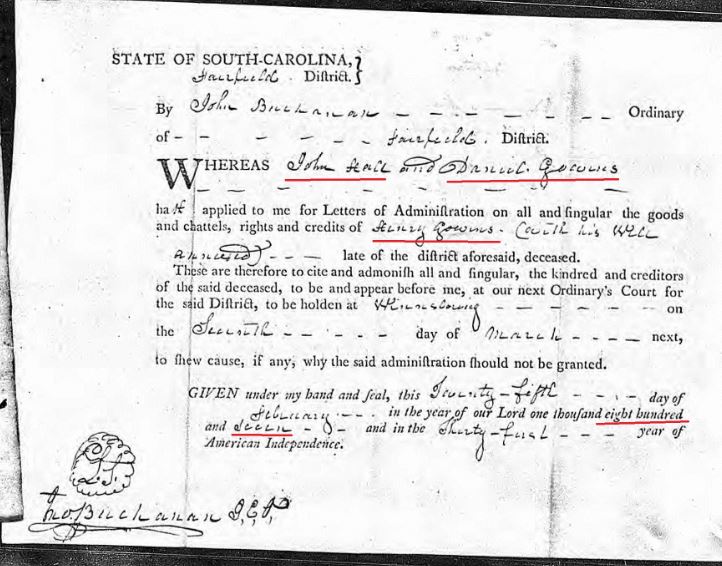 STATE OF SOUTH-CAROLINA,}
Fairfield. Diſtrict.}
By John Buchanan – – – – – – – Ordinary
of – – – – – – Fairfield. Diſtrict.
WHEREAS John Hall and Daniel Gowens
– – – – – – – –
hath applied to me for Letters of Adminiſtration on all and ſingular the goods
and chattels, rights and credits of Henry Gowens. (with his Will
annexed) – – – late of the diſtrict aforeſaid, deceaſed.
Theſe are therefore to cite and admoniſh all and ſingular, the kindred and creditors
of the ſaid deceaſed, to be and appear before me, at our next Ordinary's Court for
the ſaid Diſtrict, to be holden at Winnsborg – – – – – – on
the Seventh – – – – – day of March – – – – next,
to ſhew cauſe, if any, why the ſaid adminiſtration ſhould not be granted.
GIVEN under my hand and ſeal, this Twenty-fifth – – – – day of
February – – – in the year of our Lord one thouſand eight hundred
and Seven – – and in the Thirty-first – – – year of
American Independence.
L.S.
Jno. Buchanan